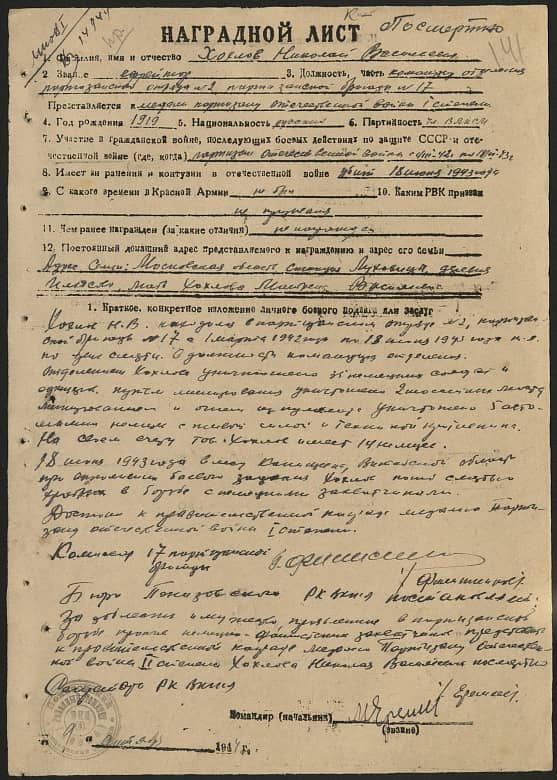 Посмертно
НАГРАДНОЙ ЛИСТ
1. Фамилия, имя и отчество Хохлов Николай Васильевич
2. Звание ефрейтор 3. Должность, часть командир отделения
партизанского отряда №2 партизанской бригады №17
Представляется к медали партизану отечественной войны I степени
4. Год рождения 1919 5. Национальность русский 6. Партийность чл. ВЛКСМ
7. Участие в гражданской войне, последующих боевых действиях по защите СССР и оте-
чественной войне (где, когда) партизан Отечественной войны с
8. Имеет ли ранения и контузии в отечественной войне убит 18 июня 1943 года
9. С какого времени в Красной Армии не был 10. Каким РВК призван
не призывался
11. Чем ранее награжден (за какие отличия) не награждался
12. Постоянный домашний адрес представляемого к награждению и адрес его семьи
Адрес семьи: Московская область станция Луховицы, деревня
мать Хохлова
1. Краткое, конкретное изложение личного боевого подвига или заслуг
Хохлов Н.В. находился в партизанском отряде №2, партизан-
ской бригады №17 с 1 марта 1942 года по 18 июня 1943 года т.е.
по день смерти. В должности командира отделения.
Отделением Хохлова уничтожено немецких солдат и
офицеров, путем минирования уничтожено 2 моста
Минированием и огнем из пулемета уничтожено 5 авто-
машин немцев с живой силой и техникой противника.
На своем счету тов. Хохлов имеет 14 немцев.
18 июня 1943 года в Витебской области
при выполнении боевого задания Хохлов погиб смертью
храбрых в борьбе с немецкими захватчиками.
Достоин к правительственной награде медали Парти-
зану отечественной войны I степени.
Комиссар 17 партизанской
бригады
Бюро Понизовского РК ВКП(б) постановляет:
За доблесть и мужество проявленные в партизанской
борьбе против немецко-фашистских захватчиков представить
к правительственной награде Медали Партизану Отечествен-
ной войны II степени Хохлова Николая Васильевича посмертно
Секретарь РК ВКП(б)
Командир (начальник)
(звание)
9 1944 г.